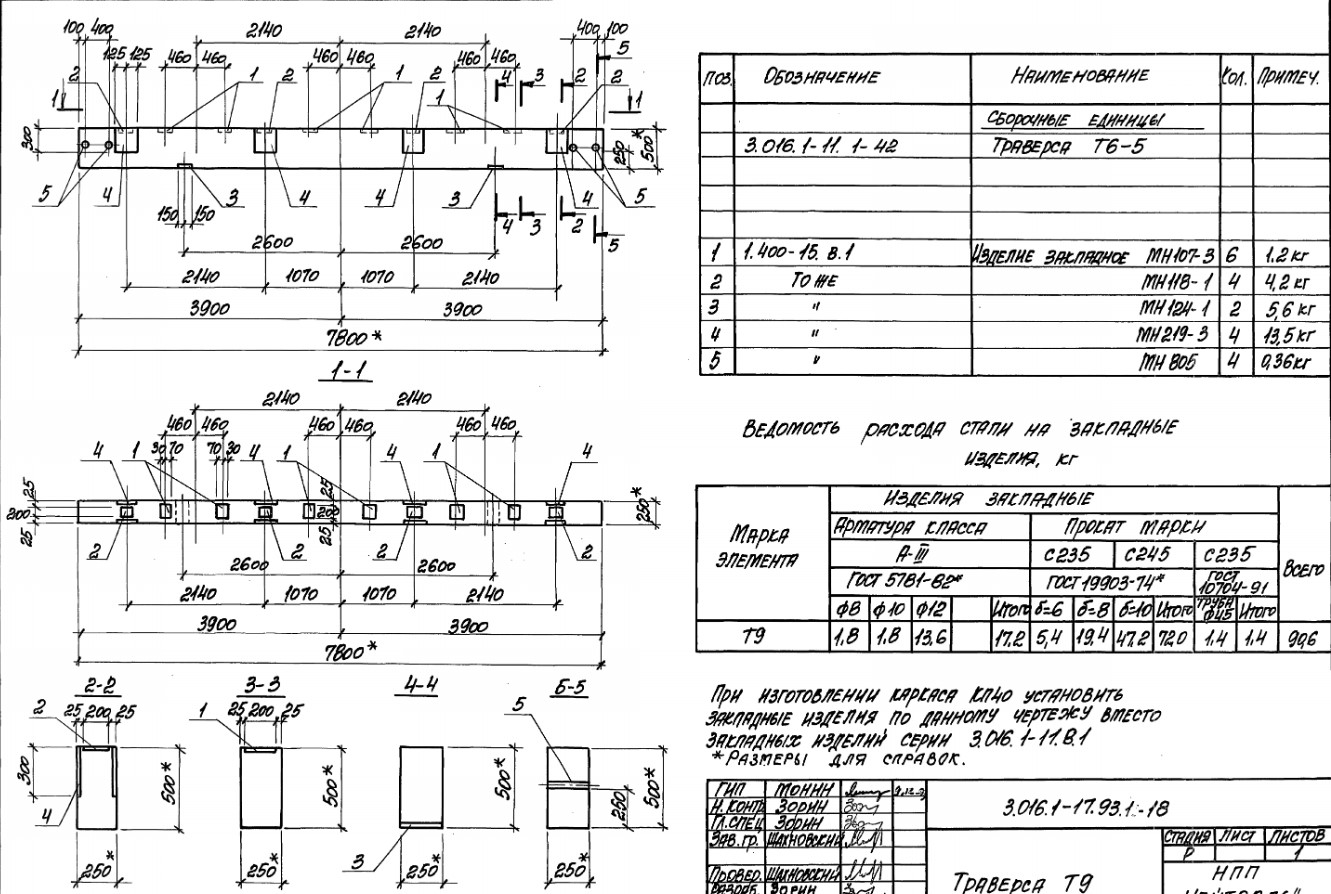 100 400 2140 2140 400 100
125 125 460 460 460 460 460 460 5
2 1 2 1 2 1 4 3 2 2
1 1
300 250 500*
5 4 3 4 4 3 4 5
150 150 4 3 2 5
2600 2600
2140 1070 1070 2140
3900 3900
7800*
1-1
2140 2140
460 460 460 460 460 460
4 1 30 70 70 30 4 1 4 1 4
25 200 25 25 200 25 250*
2 2 2 2
2600 2600
2140 1070 1070 2140
3900 3900
7800*
2-2 3-3 4-4 5-5
2 25 200 25 1 25 200 25 5
300 500* 500* 500* 250 500*
4 3
250* 250* 250* 250*
Поз. Обозначение Наименование Кол. Примеч.
Сборочные единицы
3.016.1-11. 1-42 Траверса Т6-5
1 1.400-15. В.1 Изделие закладное МН107-3 6 1.2 кг
2 То же МН118-1 4 4,2 кг
3 " МН124-1 2 5,6 кг
4 " МН219-3 4 13,5 кг
5 " МН 805 4 0,36кг
Ведомость расхода стали на закладные
изделия, кг
Марка элемента Изделия закладные Всего
Арматура класса Прокат марки
А-III С235 С245 С235
ГОСТ 5781-82* ГОСТ 19903-74* ГОСТ 10704-91
Ф8 Ф10 Ф12 Итого δ=6 δ=8 δ=10 Итого Труба Ф45 Итого
Т9 1,8 1,8 13,6 17,2 5,4 19,4 47,2 72,0 1,4 1,4 90,6
При изготовлении каркаса КП40 установить
закладные изделия по данному чертежу вместо
закладных изделий серии 3.016.1-11.В.1
*Размеры для справок.
ГИП Монин
Н. контр Зорин
Гл. спец Зорин
Зав. гр. Шахновский
Провер. Шахновский
Разраб. Зорин
3.016.1-17.93.1-18
Траверса Т9
Стадия Лист Листов
Р 1
НПП